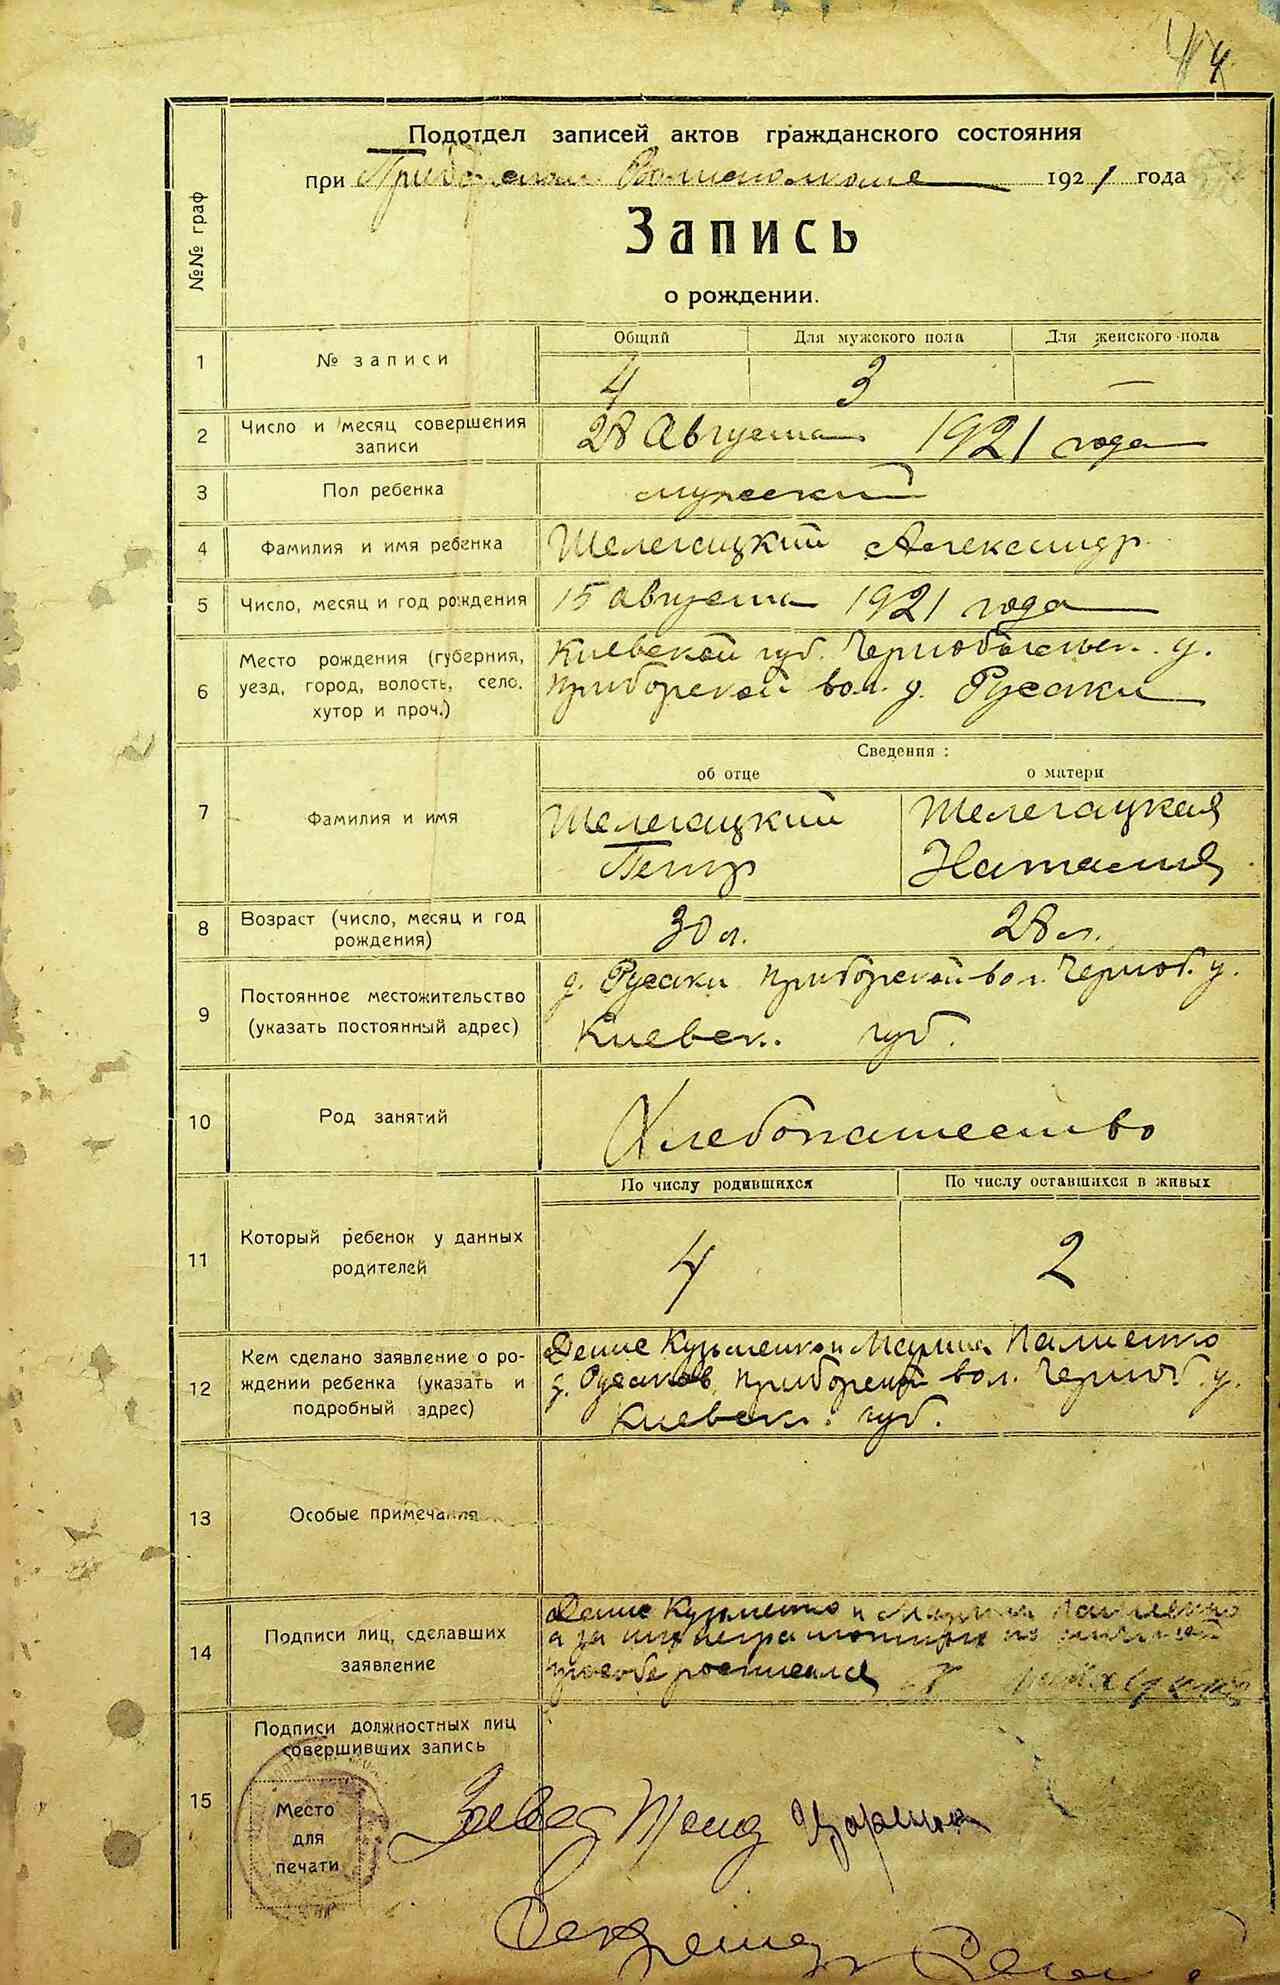 44
Подотдел записей актов гражданского состояния
при Приборском Волисполкоме 1921 года
№№ граф
Запись
о рождении.
Общий Для мужского пола Для женского пола
1 № записи 4 3 —
2 Число и месяц совершения записи 28 Августа 1921 года
3 Пол ребенка мужеский
4 Фамилия и имя ребенка Шелегацкий Александр
5 Число, месяц и год рождения 15 августа 1921 года
6 Место рождения (губерния, Киевской губ. Чернобыльск. у.
уезд, город, волость, село, Приборской вол. д. Русаки
хутор и проч.)
Сведения:
об отце о матери
7 Фамилия и имя Шелегацкий Шелегацкая
Петр Наталия
8 Возраст (число, месяц и год рождения) 30 л. 28 л.
9 Постоянное местожительство д. Русаки Приборской вол. Черноб. у.
(указать постоянный адрес) Киевск. губ.
10 Род занятий Хлебопашество
По числу родившихся По числу оставшихся в живых
11 Который ребенок у данных родителей 4 2
12 Кем сделано заявление о ро- Денис Кузьменко и Марина
ждении ребенка (указать и д. Русаков Приборской вол. Черноб. у.
подробный адрес) Киевск. губ.
13 Особые примечания
14 Подписи лиц, сделавших Денис Кузьменко и Марина
заявление а за них неграмотных по личной
просьбе росписался
15 Подписи должностных лиц
совершивших запись
Место
для
печати
Завед
Секретар